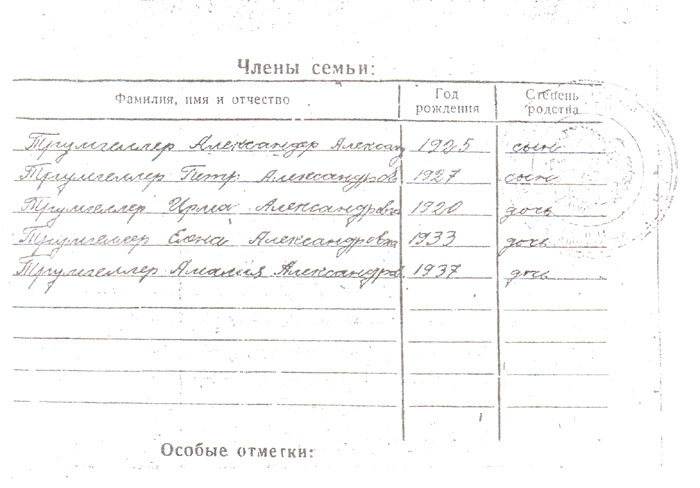 Члены семьи:
Фамилия, имя и отчество
Год рождения
Степень родства
Тргумгеллер Александр Александ 1925 сын
Тргумгеллер Петр Александров 1927 сын
Тргумгеллер Ирма Александровна 1920 дочь
Тргумгеллер Елена Александровна 1933 дочь
Тргумгеллер Амалия Александров 1937 дочь
Особые отметки: